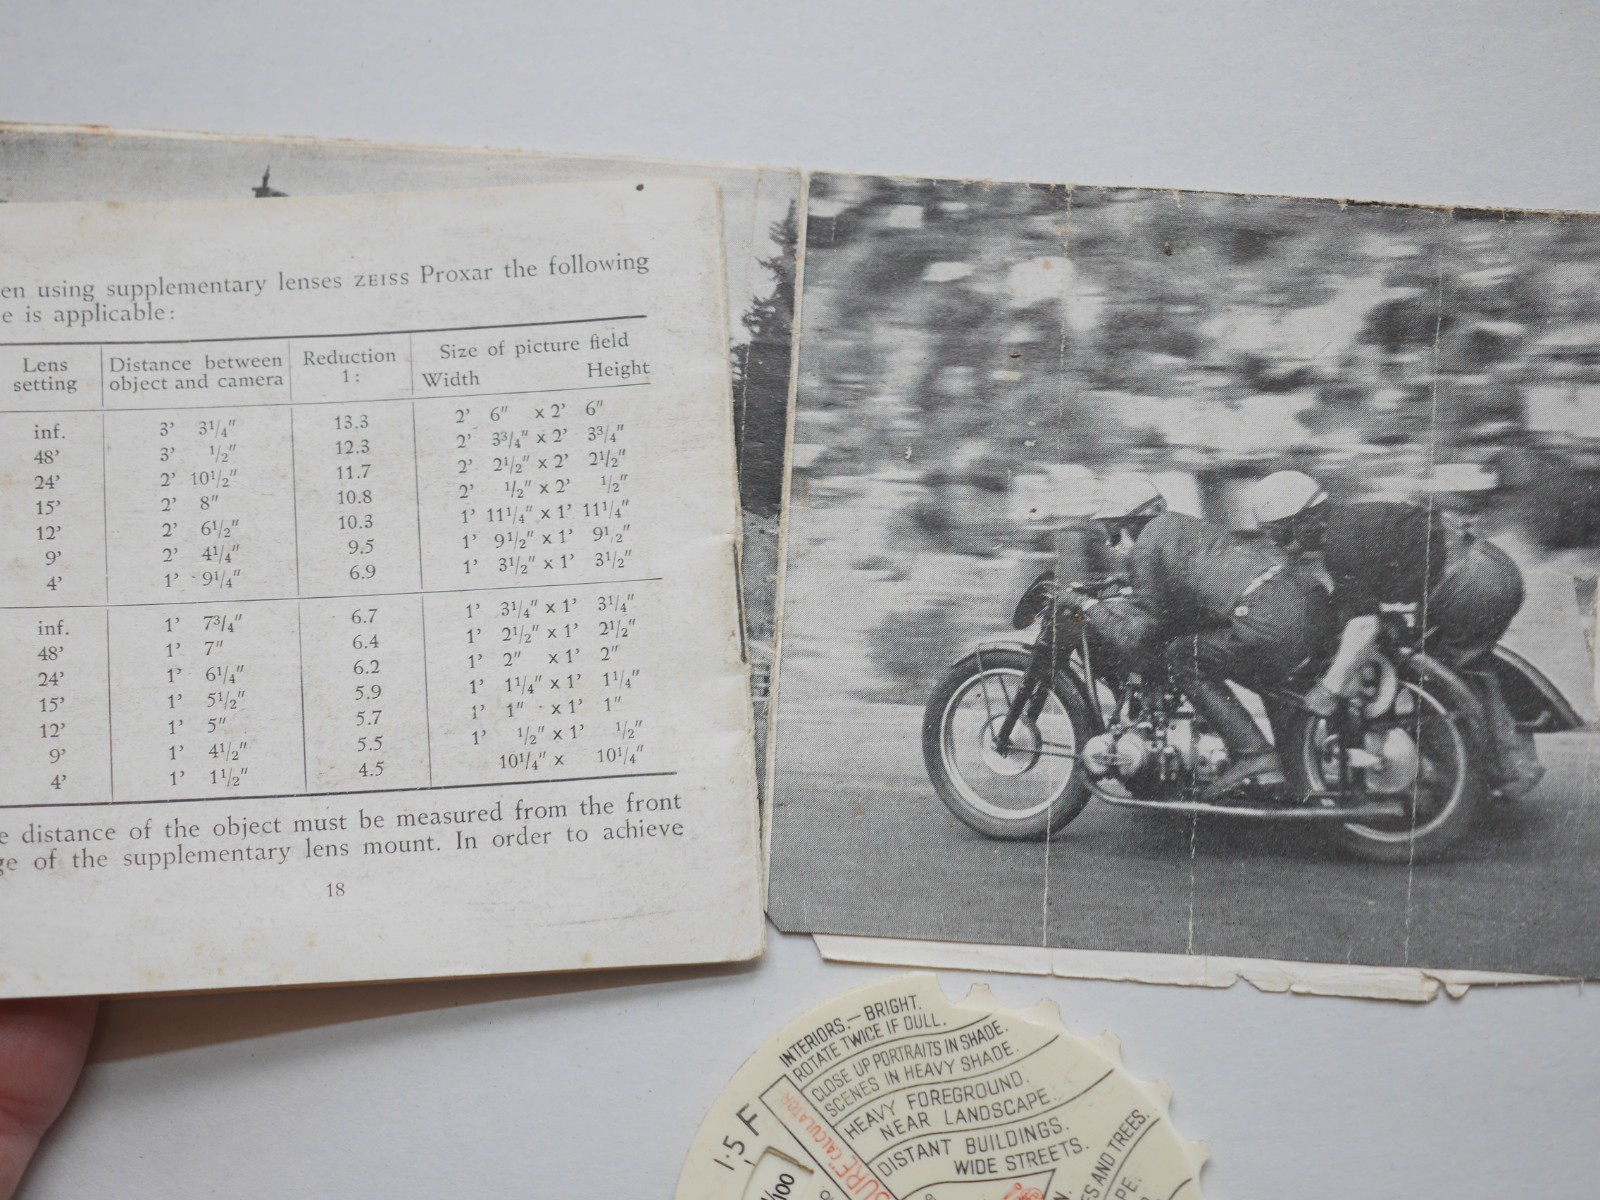 en using supplementary lenses ZEISS Proxar the following
e is applicable:
Lens setting Distance between object and camera Reduction 1: Size of picture field Width Height
inf. 3' 3¼" 13.3 2' 6" x 2' 6"
48' 3' ½" 12.3 2' 3¾" x 2' 3¾"
24' 2' 10½" 11.7 2' 2½" x 2' 2½"
15' 2' 8" 10.8 2' ½" x 2' ½"
12' 2' 6½" 10.3 1' 11¼" x 1' 11¼"
9' 2' 4¼" 9.5 1' 9½" x 1' 9½"
4' 1' 9¼" 6.9 1' 3½" x 1' 3½"
inf. 1' 7¾" 6.7 1' 3¼" x 1' 3¼"
48' 1' 7" 6.4 1' 2½" x 1' 2½"
24' 1' 6¼" 6.2 1' 2" x 1' 2"
15' 1' 5½" 5.9 1' 1¼" x 1' 1¼"
12' 1' 5" 5.7 1' 1" x 1' 1"
9' 1' 4½" 5.5 1' ½" x 1' ½"
4' 1' 1½" 4.5 10¼" x 10¼"
e distance of the object must be measured from the front
ge of the supplementary lens mount. In order to achieve
18
INTERIORS.— BRIGHT.
ROTATE TWICE IF DULL.
CLOSE UP PORTRAITS IN SHADE.
SCENES IN HEAVY SHADE.
HEAVY FOREGROUND.
NEAR LANDSCAPE.
DISTANT BUILDINGS.
WIDE STREETS.
S AND TREES.
PE.
N.
SURE" CALCULATOR
1·5 F
/100